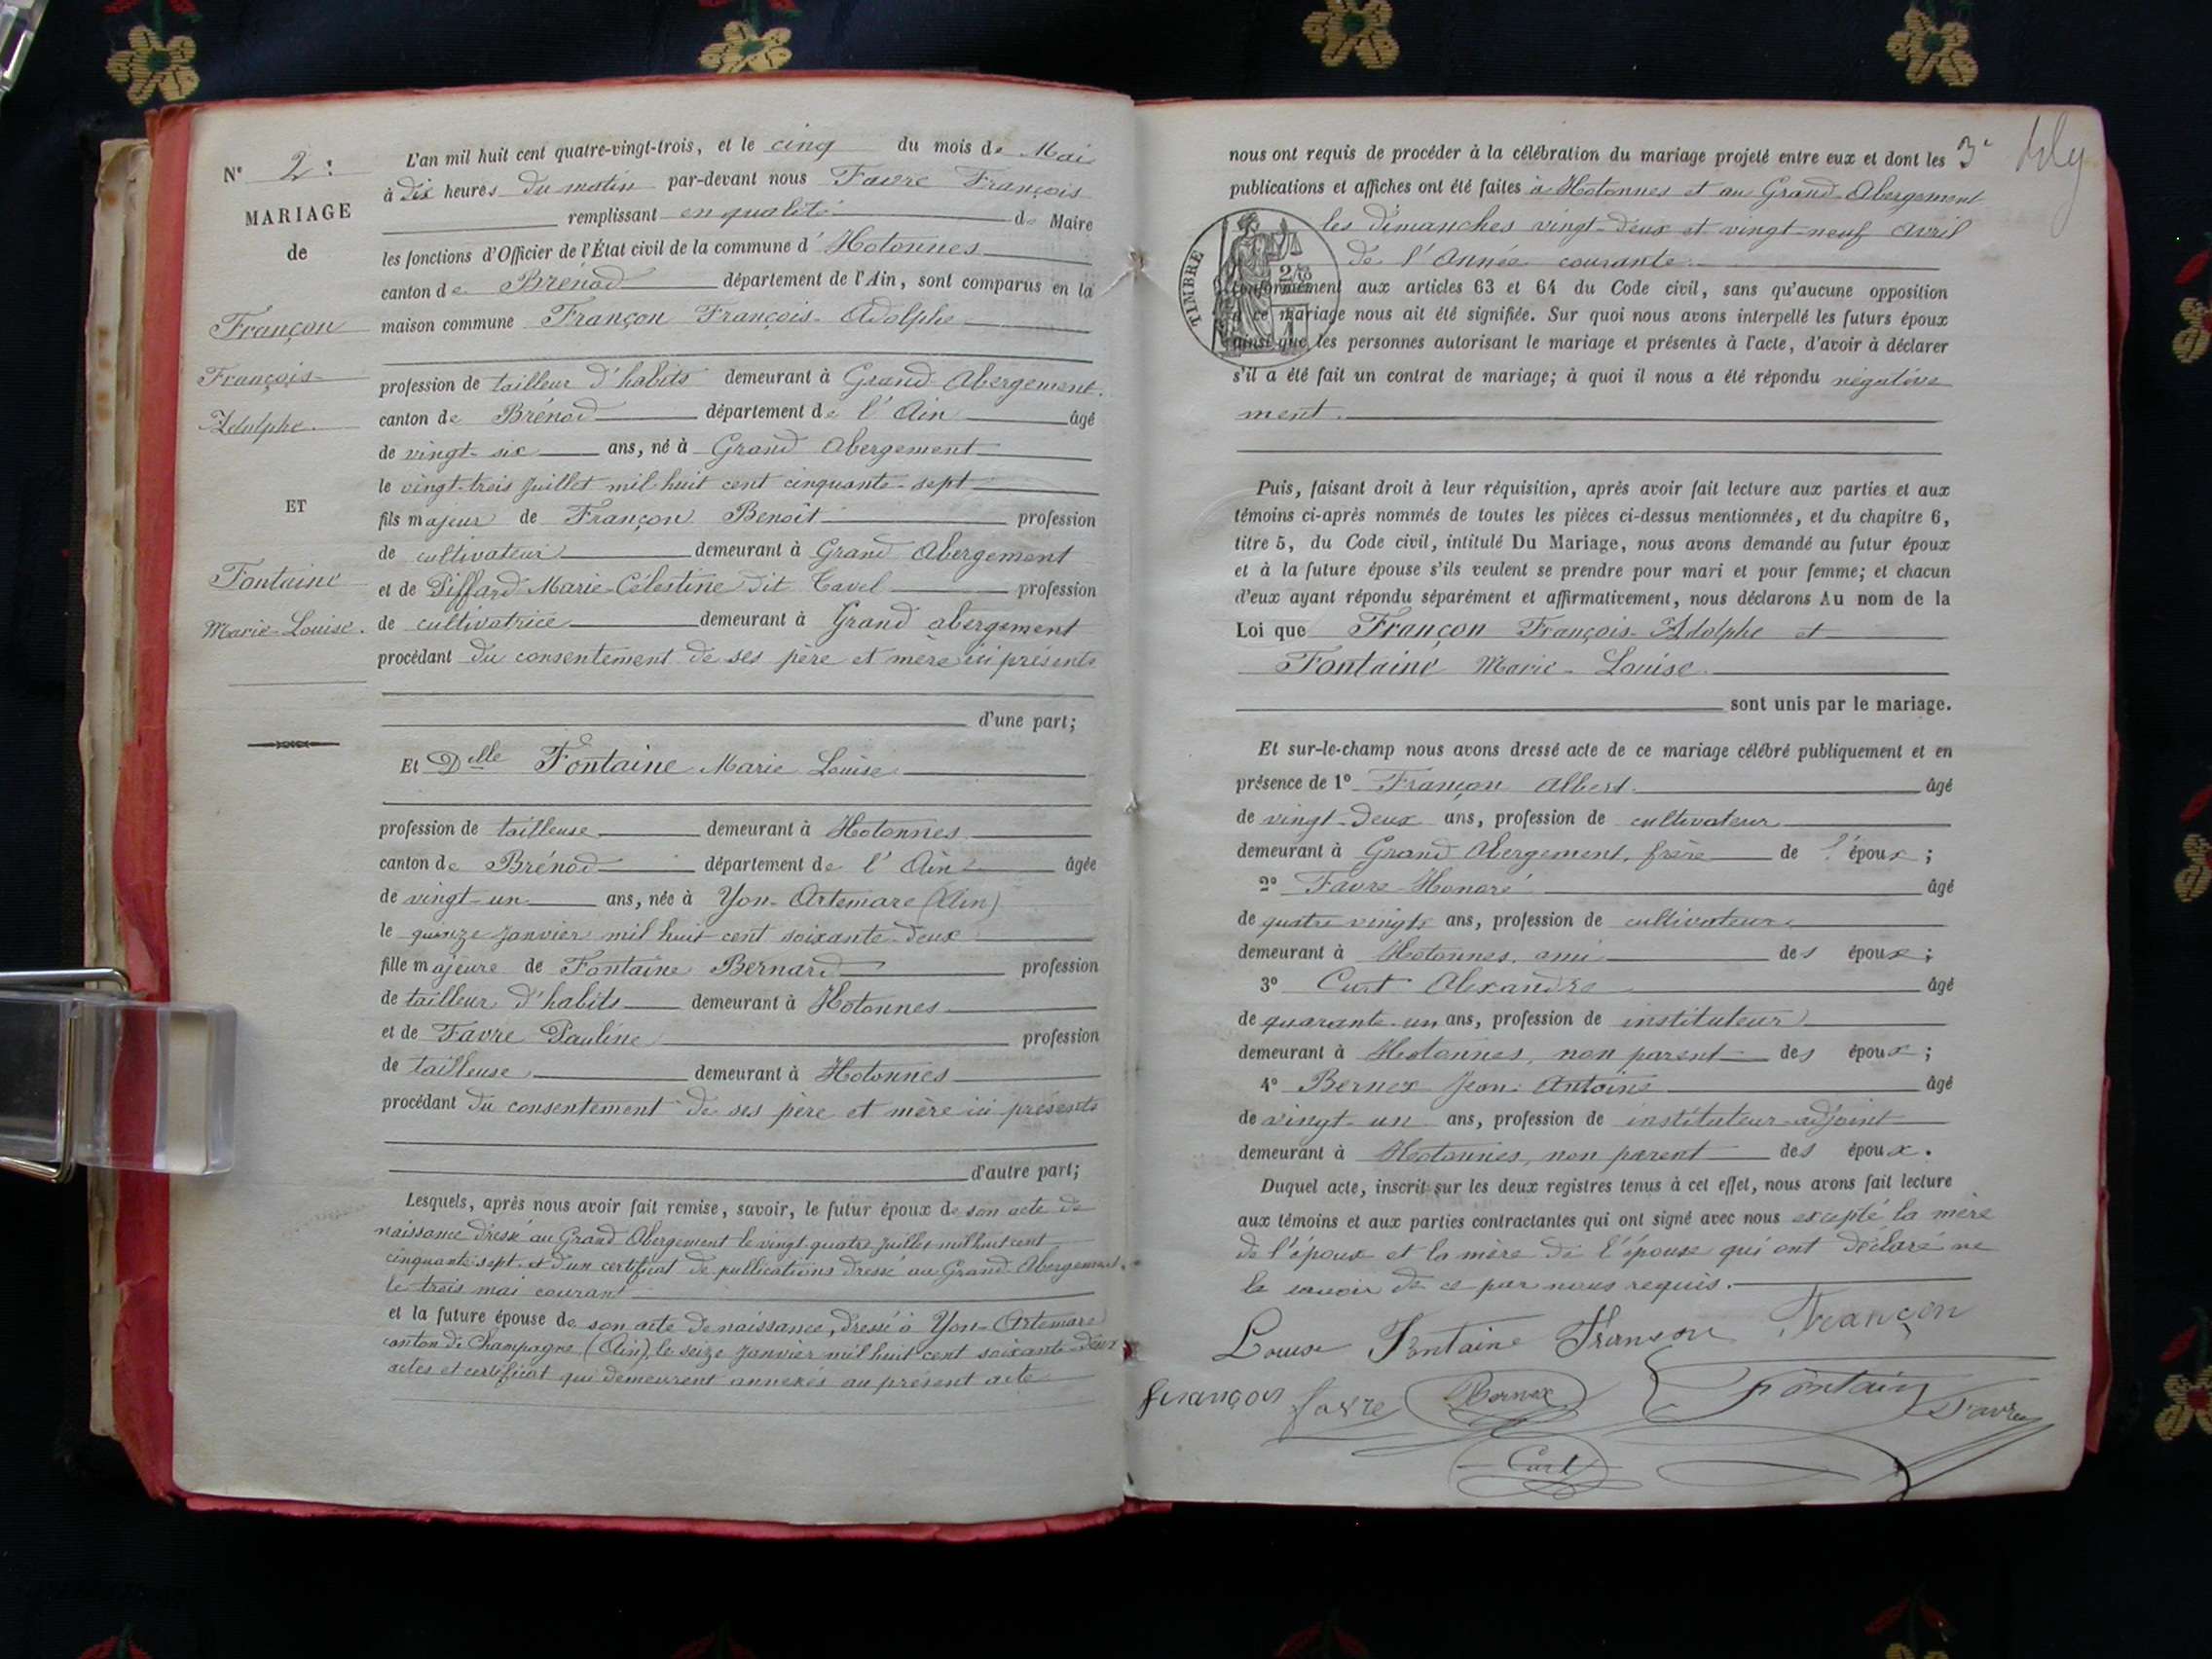 N° 2:
MARIAGE
de
Françon
François-
Adolphe.
ET
Fontaine
Marie-Louise.
L'an mil huit cent quatre-vingt-trois, et le cinq du mois de Mai
à dix heures du matin par-devant nous Favre François
remplissant en qualité de Maire
les fonctions d'Officier de l'État civil de la commune d'Hotonnes
canton de Brénod département de l'Ain, sont comparus en la
maison commune Françon François-Adolphe
profession de tailleur d'habits demeurant à Grand Abergement.
canton de Brénod département de l'Ain âgé
de vingt-six ans, né à Grand Abergement
le vingt-trois juillet mil huit cent cinquante-sept
fils majeur de Françon Benoît profession
de cultivateur demeurant à Grand Abergement
et de Piffard Marie-Célestine dit Cavel profession
de cultivatrice demeurant à Grand abergement
procédant du consentement de ses père et mère ici présents
d'une part;
Et Delle Fontaine Marie Louise
profession de tailleuse demeurant à Hotonnes
canton de Brénod département de l'Ain âgée
de vingt-un ans, née à Yon-Artemare (Ain)
le quinze janvier mil huit cent soixante-deux
fille majeure de Fontaine Bernard profession
de tailleur d'habits demeurant à Hotonnes
et de Favre Pauline profession
de tailleuse demeurant à Hotonnes
procédant du consentement de ses père et mère ici présents
d'autre part;
Lesquels, après nous avoir fait remise, savoir, le futur époux de son acte de
naissance dressé au Grand Abergement le vingt-quatre juillet mil huit cent
cinquante-sept. et d'un certificat de publications dressé au Grand-Abergement,
le trois mai courant
et la future épouse de son acte de naissance, dressé à Yon-Artemare
canton de Champagne (Ain), le seize janvier mil huit cent soixante-deux
actes et certificat qui demeurent annexés au présent acte
3e
nous ont requis de procéder à la célébration du mariage projeté entre eux et dont les
publications et affiches ont été faites à Hotonnes et au Grand-Abergement
les dimanches vingt-deux et vingt-neuf avril
de l'Année courante.
TIMBRE
conformément aux articles 63 et 64 du Code civil, sans qu'aucune opposition
à ce mariage nous ait été signifiée. Sur quoi nous avons interpellé les futurs époux
ainsi que les personnes autorisant le mariage et présentes à l'acte, d'avoir à déclarer
s'il a été fait un contrat de mariage; à quoi il nous a été répondu négative
ment.
Puis, faisant droit à leur réquisition, après avoir fait lecture aux parties et aux
témoins ci-après nommés de toutes les pièces ci-dessus mentionnées, et du chapitre 6,
titre 5, du Code civil, intitulé Du Mariage, nous avons demandé au futur époux
et à la future épouse s'ils veulent se prendre pour mari et pour femme; et chacun
d'eux ayant répondu séparément et affirmativement, nous déclarons Au nom de la
Loi que Françon François-Adolphe et
Fontaine Marie-Louise
sont unis par le mariage.
Et sur-le-champ nous avons dressé acte de ce mariage célébré publiquement et en
présence de 1° Françon Albert âgé
de vingt-deux ans, profession de cultivateur
demeurant à Grand Abergement, frère de l'époux;
2° Favre Honoré âgé
de quatre vingts ans, profession de cultivateur
demeurant à Hotonnes, ami des époux;
3° Curt Alexandre âgé
de quarante-un ans, profession de instituteur
demeurant à Hotonnes, non parent des époux;
4° Bernex Jean-Antoine âgé
de vingt-un ans, profession de instituteur-adjoint
demeurant à Hotonnes, non parent des époux.
Duquel acte, inscrit sur les deux registres tenus à cet effet, nous avons fait lecture
aux témoins et aux parties contractantes qui ont signé avec nous excepté la mère
de l'époux et la mère de l'épouse qui ont déclaré ne
le savoir de ce par nous requis.
Louise Fontaine Franson Françon
françon favre Bernex Fontain Favre
Curt